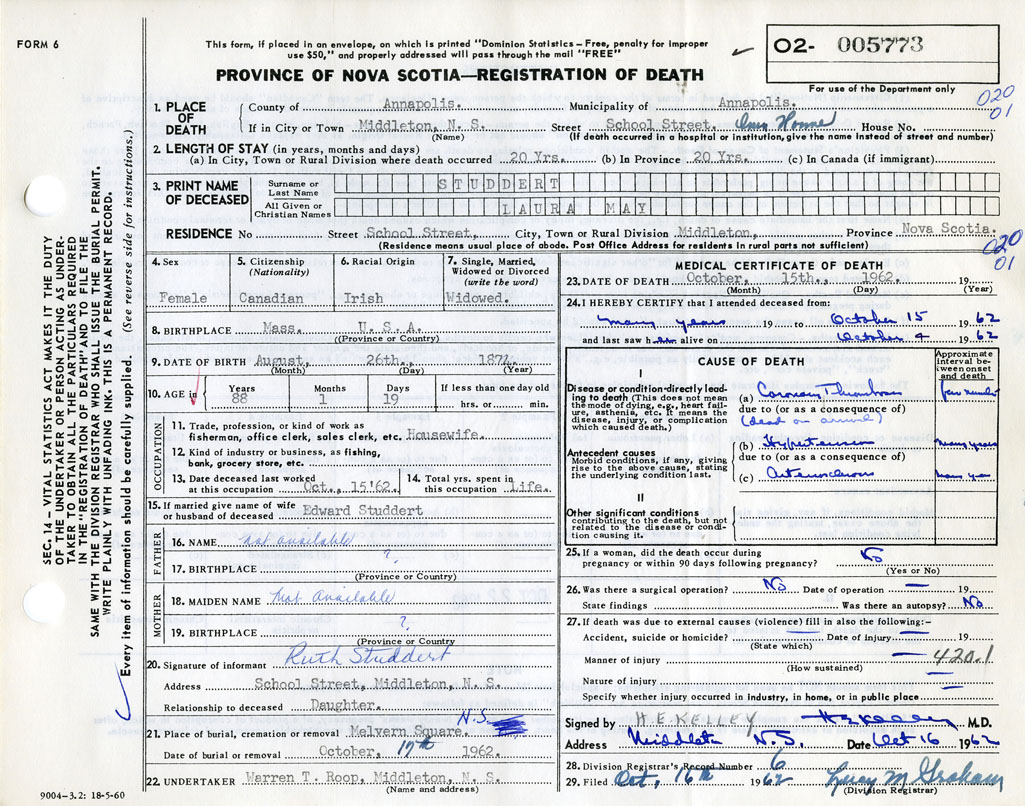 FORM 6
This form, if placed in an envelope, on which is printed "Dominion Statistics – Free, penalty for improper
use $50," and properly addressed will pass through the mail "FREE"
PROVINCE OF NOVA SCOTIA—REGISTRATION OF DEATH
O2- 005773
For use of the Department only
020
01
SEC. 14 – VITAL STATISTICS ACT MAKES IT THE DUTY
OF THE UNDERTAKER OR PERSON ACTING AS UNDER-
TAKER TO OBTAIN ALL THE PARTICULARS REQUIRED
IN THE "REGISTRATION OF DEATH" AND TO FILE THE
SAME WITH THE DIVISION REGISTRAR WHO SHALL ISSUE THE BURIAL PERMIT.
WRITE PLAINLY WITH UNFADING INK. THIS IS A PERMANENT RECORD.
Every item of information should be carefully supplied. (See reverse side for instructions.)
1. PLACE OF DEATH
County of Annapolis. Municipality of Annapolis.
If in City or Town Middleton, N. S. Street School Street. Own Home House No.
(Name) (If death occurred in a hospital or institution, give the name instead of street and number)
2. LENGTH OF STAY (in years, months and days)
(a) In City, Town or Rural Division where death occurred 20 Yrs. (b) In Province 20 Yrs. (c) In Canada (if immigrant)
3. PRINT NAME OF DECEASED
Surname or Last Name STUDDERT
All Given or Christian Names LAURA MAY
RESIDENCE No Street School Street, City, Town or Rural Division Middleton, Province Nova Scotia.
(Residence means usual place of abode. Post Office Address for residents in rural parts not sufficient)
020
01
4. Sex
Female
5. Citizenship (Nationality)
Canadian
6. Racial Origin
Irish
7. Single, Married, Widowed or Divorced (write the word)
Widowed.
8. BIRTHPLACE Mass. U. S. A.
(Province or Country)
9. DATE OF BIRTH August, 26th. 1874
(Month) (Day) (Year)
10. AGE in
Years 88
Months 1
Days 19
If less than one day old
hrs. or min.
OCCUPATION
11. Trade, profession, or kind of work as
fisherman, office clerk, sales clerk, etc. Housewife.
12. Kind of industry or business, as fishing,
bank, grocery store, etc.
13. Date deceased last worked
at this occupation Oct., 15'62.
14. Total yrs. spent in
this occupation Life.
15. If married give name of wife
or husband of deceased Edward Studdert
FATHER
16. NAME not available
17. BIRTHPLACE ?
(Province or Country)
MOTHER
18. MAIDEN NAME Not Available
19. BIRTHPLACE ?
(Province or Country)
20. Signature of informant Ruth Studdert
Address School Street, Middleton, N. S.
Relationship to deceased Daughter.
21. Place of burial, cremation or removal Melvern Square. N.S.
Date of burial or removal October, 17th 1962.
22. UNDERTAKER Warren T. Roop, Middleton, N. S.
(Name and address)
9004-3.2: 18-5-60
MEDICAL CERTIFICATE OF DEATH
23. DATE OF DEATH October, 15th., 1962. 19
(Month) (Day) (Year)
24. I HEREBY CERTIFY that I attended deceased from:
many years 19 to October 15 1962
and last saw her alive on October 4 1962
CAUSE OF DEATH
Approximate interval between onset and death
I
Disease or condition directly leading to death (This does not mean the mode of dying, e.g., heart failure, asthenia, etc. It means the disease, injury, or complication which caused death.)
(a) Coronary Thrombosis few minutes
due to (or as a consequence of)
(dead on arrival)
Antecedent causes
Morbid conditions, if any, giving rise to the above cause, stating the underlying condition last.
(b) Hypertension many years
due to (or as a consequence of)
(c) many years
II
Other significant conditions
contributing to the death, but not related to the disease or condition causing it.
25. If a woman, did the death occur during
pregnancy or within 90 days following pregnancy? No
(Yes or No)
26. Was there a surgical operation? No Date of operation — 19
State findings Was there an autopsy? No
27. If death was due to external causes (violence) fill in also the following:–
Accident, suicide or homicide? — Date of injury — 19
(State which)
Manner of injury — 420.1
(How sustained)
Nature of injury —
Specify whether injury occurred in industry, in home, or in public place
Signed by H. E. KELLEY H E Kelley M.D.
Address Middleton N.S. Date Oct 16 1962
28. Division Registrar's Record Number 6
29. Filed Oct, 16th 1962 Lucy M Graham
(Division Registrar)